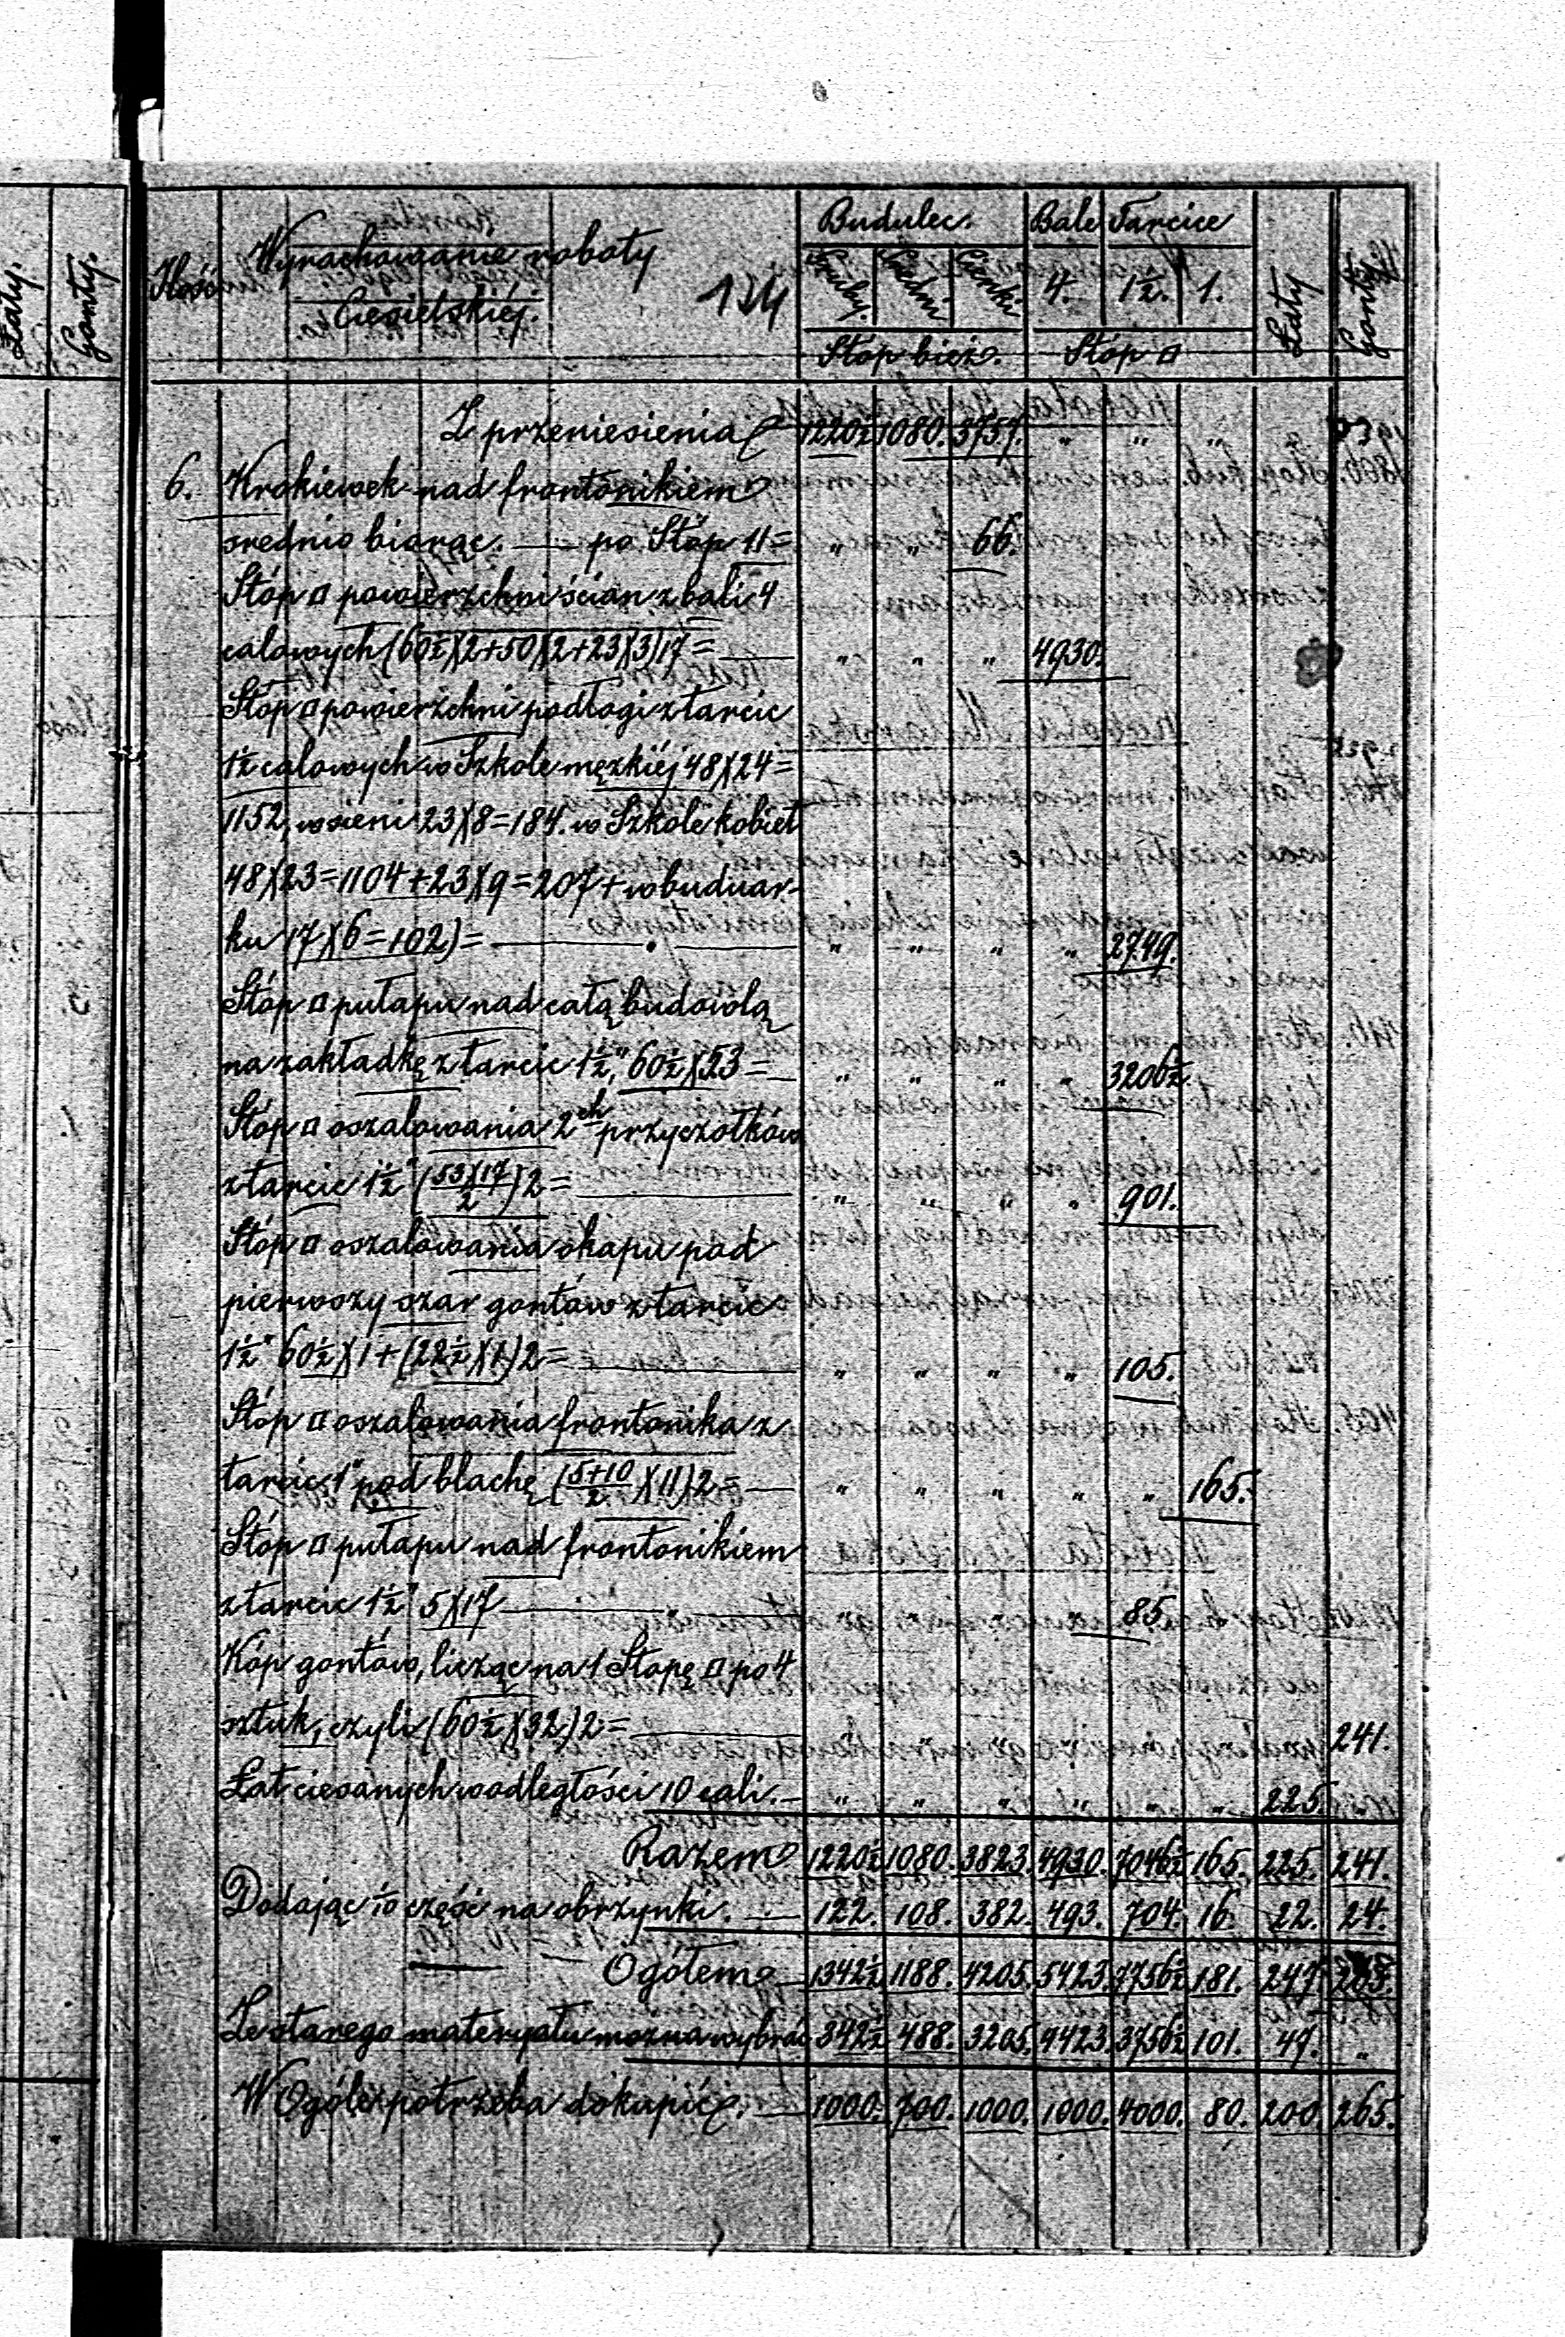 Łaty. Gonty.
Ilość Wyrachowanie roboty Ciesielskiéj. 134 Budulec. Bale Tarcice
Gruby. Średni Cienki 4. 1½. 1. Łaty Gonty
Stóp bież. Stóp □
Z przeniesienia 1220½ 1080. 3757. " " "
6. Krokiewek nad frontonikiem
srednio biorąc. — po Stóp 11= " " 66.
Stóp □ powierzchni ścian z bali 4
calowych (60½)(2+50)(2+23)(3)17= — " " " 4930.
Stóp □ powierzchni podłogi z tarcic
1½ calowych w Szkole męzkiéj 48)(24=
1152, w sieni 23)(8=184. w Szkole kobiet
48)(23=1104+23)(9=207+w buduar-
ku 17)(6=102)= — " " " " 2749.
Stóp □ pułapu nad całą budowlą
na zakładkę z tarcic 1½" 60½)(53= — " " " " 3206½
Stóp □ oszalowania 2ch przyczółków
z tarcic 1½" (53)(17/2)2= — " " " " 901.
Stóp □ oszalowania okapu pod
pierwszy szar gontów z tarcic
1½" 60½)(1+(22½)(1)2= — " " " " 105.
Stóp □ oszalowania frontonika z
tarcic 1" pod blachę (5+10/2)(11)2= — " " " " " 165.
Stóp □ pułapu nad frontonikiem
z tarcic 1½" 5)(17 — " " " " 85.
Kóp gontów, licząc na 1 Stopę □ po 4
sztuk, czyli (60½)(32)2= — 241.
Łat ciesanych w odległości 10 cali. — " " " " " " 225. "
Razem 1220½ 1080. 3823. 4930. 7046½ 165. 225. 241.
Dodając 1/10 część na obrzynki. — 122. 108. 382. 493. 704. 16. 22. 24.
Ogółem — 1342½ 1188. 4205. 5423. 7756½ 181. 247. 265.
Ze starego materyału mozna wybrać 342½ 488. 3205. 4423. 3756½ 101. 47. "
W Ogóle potrzeba dokupić. — 1000. 700. 1000. 1000. 4000. 80. 200. 265.